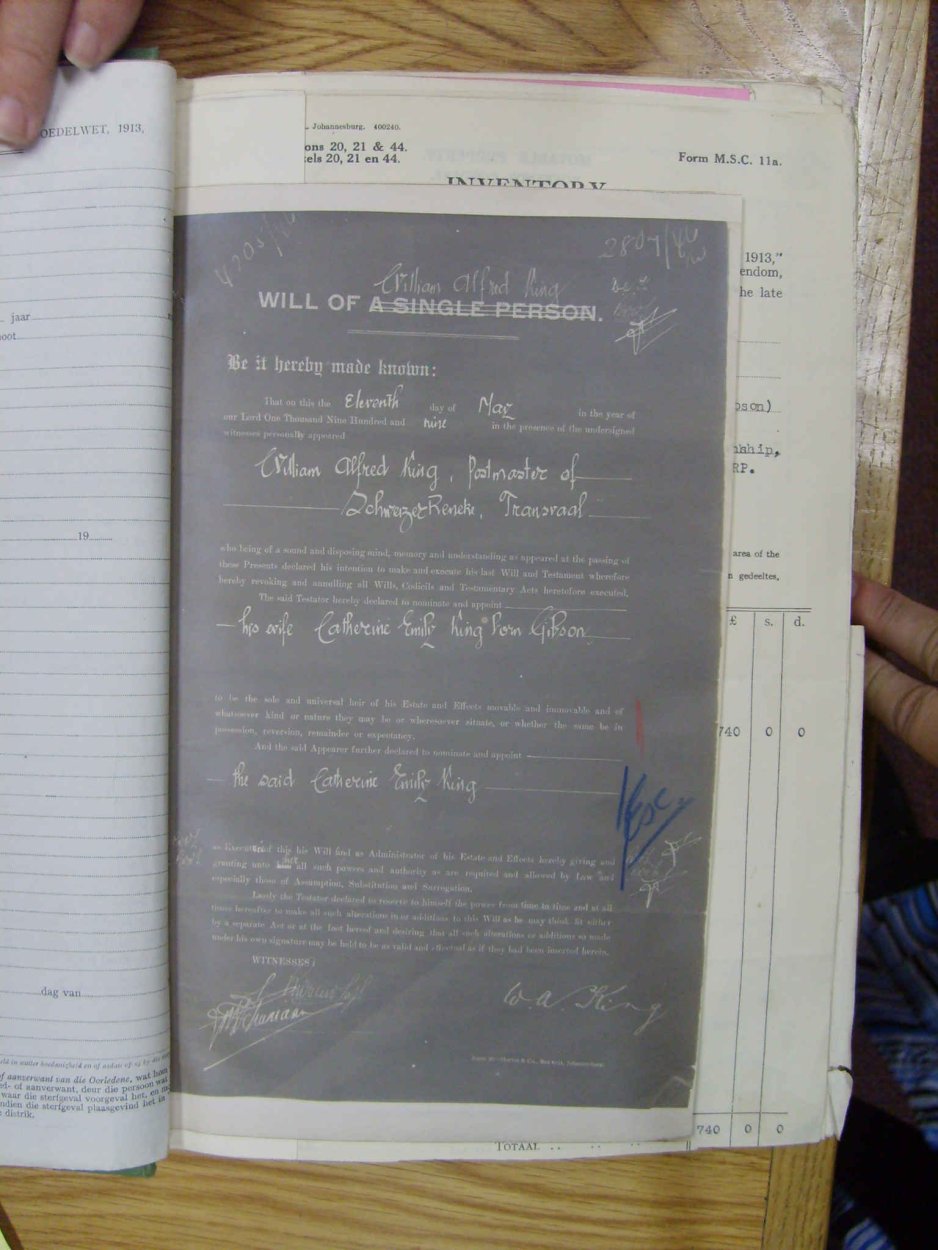 OEDELWET, 1913,
jaar
oot
19
dag van
of aanverwant van die Oorledene, wat hom
ed- of aanverwant, deur die persoon wat
waar die sterfgeval voorgeval het, en
ndien die sterfgeval plaasgevind het in
distrik.
Johannesburg. 400240.
ons 20, 21 & 44.
kels 20, 21 en 44.
Form M.S.C. 11a.
INVENTORY
1913,"
endom,
he late
son)
nship,
RP.
area of the
n gedeeltes,
£ s. d.
740 0 0
740 0 0
TOTAAL
William Alfred King
WILL OF A SINGLE PERSON.
Be it hereby made known:
That on this the Eleventh day of May in the year of
our Lord One Thousand Nine Hundred and nine in the presence of the undersigned
witnesses personally appeared
William Alfred King, Postmaster of
Schweizer Reneke, Transvaal
who being of a sound and disposing mind, memory and understanding as appeared at the passing of
these Presents declared his intention to make and execute his last Will and Testament wherefore
hereby revoking and annulling all Wills, Codicils and Testamentary Acts heretofore executed.
The said Testator hereby declared to nominate and appoint
his wife Catherine Emily King born Gibson
to be the sole and universal heir of his Estate and Effects movable and immovable and of
whatsoever kind or nature they may be or wheresoever situate, or whether the same be in
possession, reversion, remainder or expectancy.
And the said Appearer further declared to nominate and appoint
the said Catherine Emily King
as Execut of this his Will and as Administrator of his Estate and Effects hereby giving and
granting unto her all such powers and authority as are required and allowed by Law and
especially those of Assumption, Substitution and Surrogation.
Lastly the Testator declared to reserve to himself the power from time to time and at all
times hereafter to make all such alterations in or additions to this Will as he may think fit either
by a separate Act or at the foot hereof and desiring that all such alterations or additions so made
under his own signature may be held to be as valid and effectual as if they had been inserted herein.
WITNESSES:
W. A. King